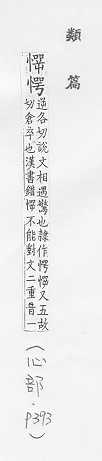 類篇
愕
逆各切說文相遇驚也隸作愕愕又五故
切倉卒也漢書錯愕不能對文二重音一
(心部.P393)